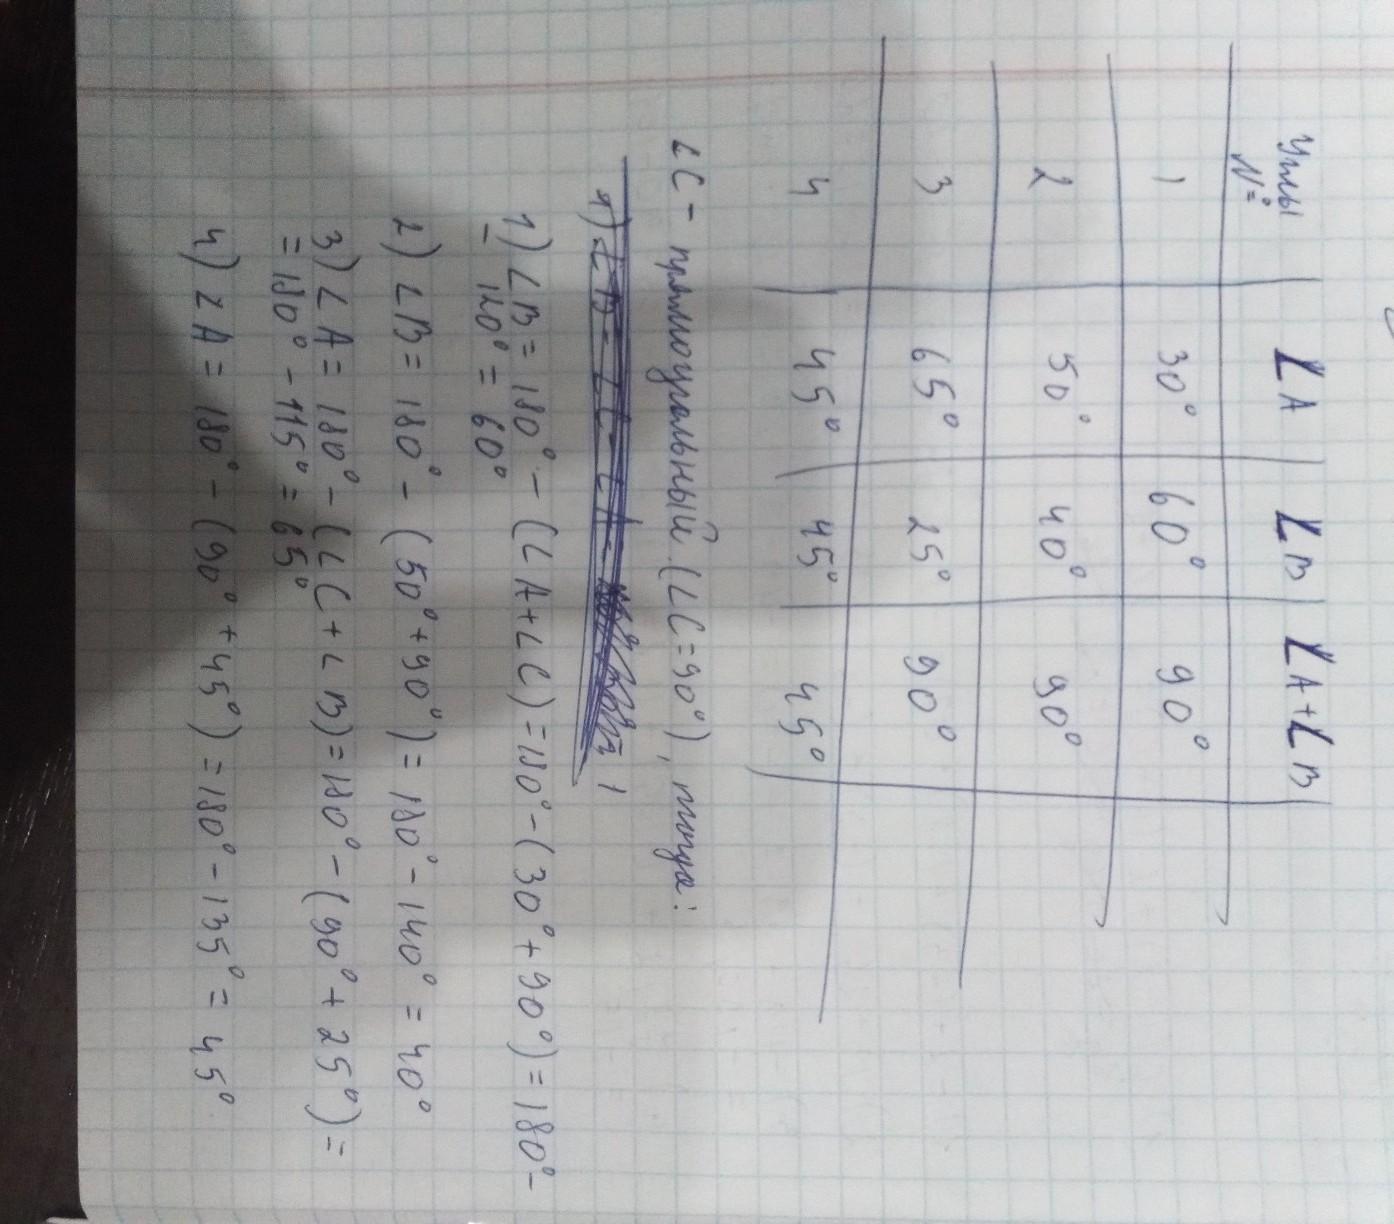 Углы ∠A ∠B ∠A+∠B
№
1 30° 60° 90°
2 50° 40° 90°
3 65° 25° 90°
4 45° 45° 45°
∠C - прямоугольный (∠C=90°), тогда:
1) ∠B = 180° - (∠A+∠C) = 180° - (30° + 90°) = 180° -
- 120° = 60°
2) ∠B = 180° - (50° + 90°) = 180° - 140° = 40°
3) ∠A = 180° - (∠C + ∠B) = 180° - (90° + 25°) =
= 180° - 115° = 65°
4) ∠A = 180° - (90° + 45°) = 180° - 135° = 45°